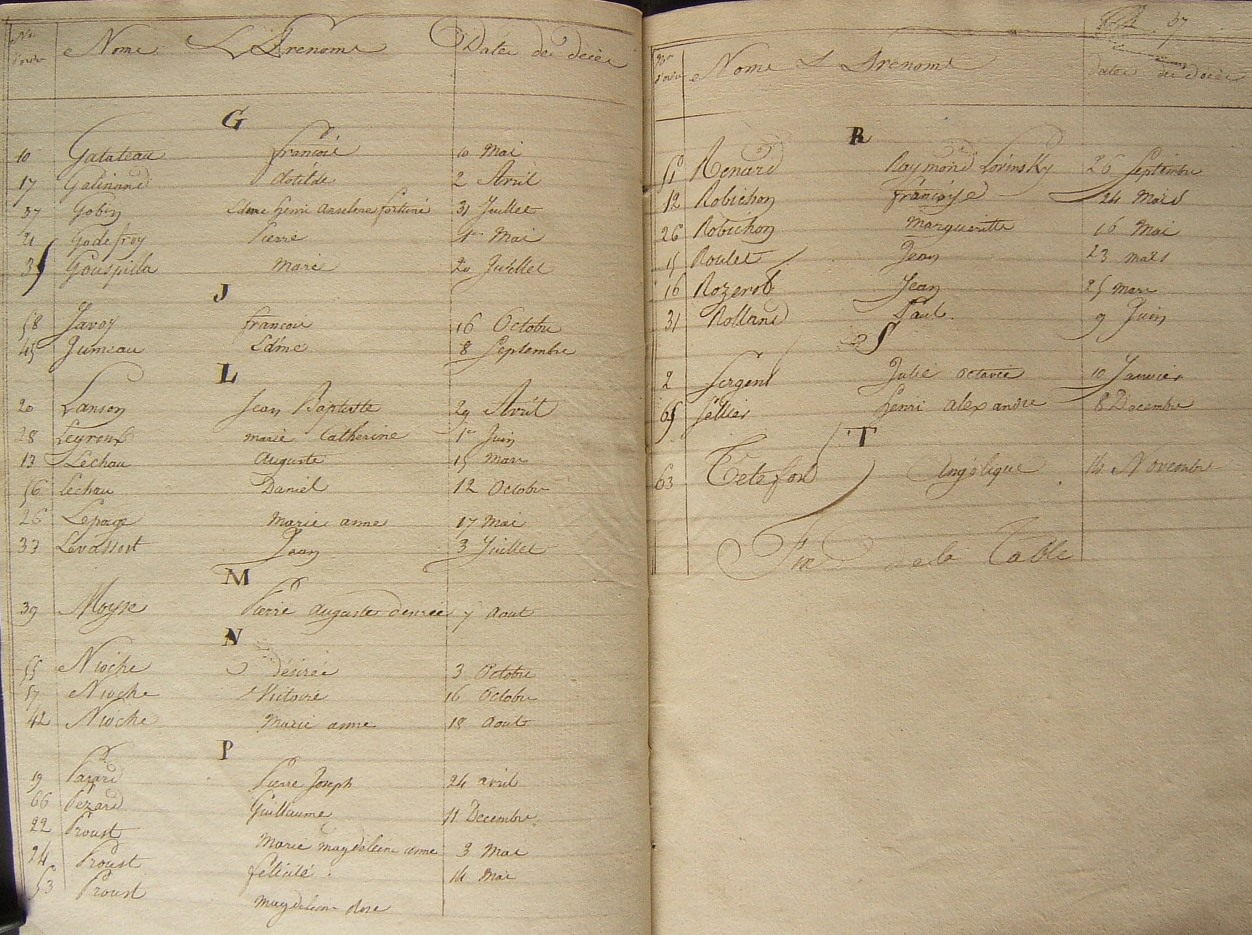 Nos d'ordre Noms & Prenoms Dates des décès
G
10 Gatateau françois 10 Mai
17 Galinand Clotilde 2 Avril
37 Gobin Edme henri anselme fortuné 31 Juillet
21 Godefroy Pierre 1er Mai
35 Gouspilla Marie 20 Juillet
J
58 Javoy francois 16 Octobre
45 Jumeau Edme 8 Septembre
L
20 Lanson Jean Baptiste 29 Avril
28 Leyroux marie Catherine 1er Juin
13 Lechau Auguste 15 Mars
56 Lechau Daniel 12 Octobre
26 Lepage Marie anne 17 Mai
33 Levassort Jean 3 Juillet
M
39 Moyse Pierre auguste desirée 7 Aout
N
55 Nioche désirée 3 Octobre
57 Nioche Victoire 16 Octobre
42 Nioche Marie anne 18 Aout
P
19 Pierre Joseph 24 avril
66 Pezard Guillaume 11 Decembre
22 Proust Marie magdeleine anne 3 Mai
24 Proust félicité 14 Mai
53 Proust Magdeleine Rose
37
Nos d'ordre Noms & Prenoms dates des décès
R
51 Renard Raymond Lovinsky 26 Septembre
12 Robichon françoise 24 Mars
26 Robichon Margueritte 16 Mai
15 Roulet Jean 23 mars
16 Rozerot Jean 25 mars
31 Rolland Paul 9 Juin
S
2 Sergent Julie octavie 10 Janvier
65 Sellier henri alexandre 8 Decembre
T
63 Tetefort Angélique 14 Novembre
Fin de la Table